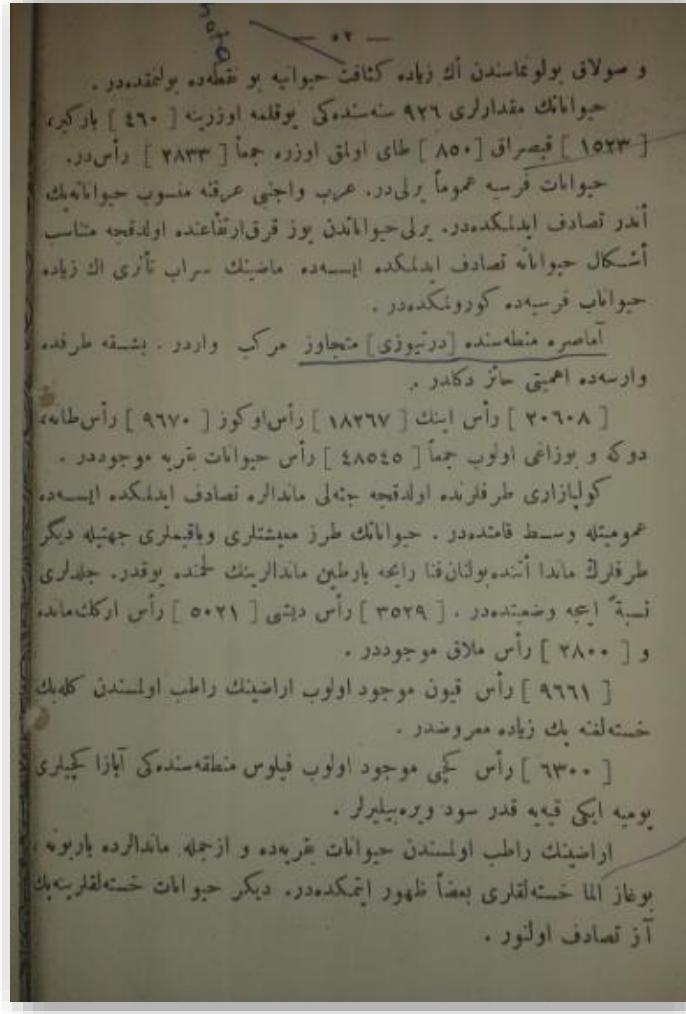 — ٥٢ —
و صولاق بولونماسندن أك زیاده كثافت حیوانیه بو نقطه‌ده بولنمقده‌در .
حیواناتك مقدارلری ٩٢٦ سنه‌سنده‌كی یوقلمه اوزرینه [ ٤٦٠ ] باركیر،
[ ١٥٢٣ ] قیصراق [ ٨٥٠ ] طای اولمق اوزره جمعاً [ ٢٨٣٣ ] رأس‌در.
حیوانات فرسیه عموماً یرلی‌در. عرب واجنبی عرقنه منسوب حیواناته‌پك
أندر تصادف ایدلمكده‌در. یرلی‌حیواناتدن یوز قرق‌ارتفاعنده اولدقجه متناسب
أشكال حیواناته تصادف ایدلمكده ایسه‌ده ماضینك سراب تأثری اك زیاده
حیوانات فرسیه‌ده كورولمكده‌در .
آماصره منطقه‌سنده [درتیوزی] متجاوز مركب واردر . بشقه طرفده
وارسه‌ده اهمیتی حائز دكلدر .
[ ٢٠٦٠٨ ] رأس اینك [ ١٨٢٦٧ ] رأس‌اوكوز [ ٩٦٧٠ ] رأس‌طانه،
دوكه و بوزاغی اولوب جمعاً [ ٤٨٥٤٥ ] رأس حیوانات بقریه موجوددر .
كولپازاری طرفلرنده اولدقجه جثه‌لی ماندالره تصادف ایدلمكده ایسه‌ده
عمومیتله وسط قامتده‌در . حیواناتك طرز معیشتلری وباقیملری جهتیله دیگر
طرفلرك ماندا أتنده‌بولنان‌فنا رایحه بارطین ماندالرینك لحمنده یوقدر. جلدلری
نسبةً اعجه وضعیتده‌در . [ ٣٥٢٩ ] رأس دیشی [ ٥٠٢١ ] رأس اركك‌مانده
و [ ٢٨٠٠ ] رأس ملاق موجوددر .
[ ٩٦٦١ ] رأس قیون موجود اولوب اراضینك راطب اولمسندن كله‌بك
خسته‌لغنه پك زیاده معروضدر .
[ ٦٣٠٠ ] رأس كچی موجود اولوب فیلوس منطقه‌سنده‌كی آبازا كچیلری
یومیه ایكی قیه‌یه قدر سود ویره‌بیلیرلر .
اراضینك راطب اولمسندن حیوانات بقریه‌ده و ازجمله ماندالرده باربونه ،
بوغاز الما خسته‌لقلری بعضاً ظهور ایتمكده‌در. دیكر حیوانات خسته‌لقلرینه‌پك
آز تصادف اولنور .